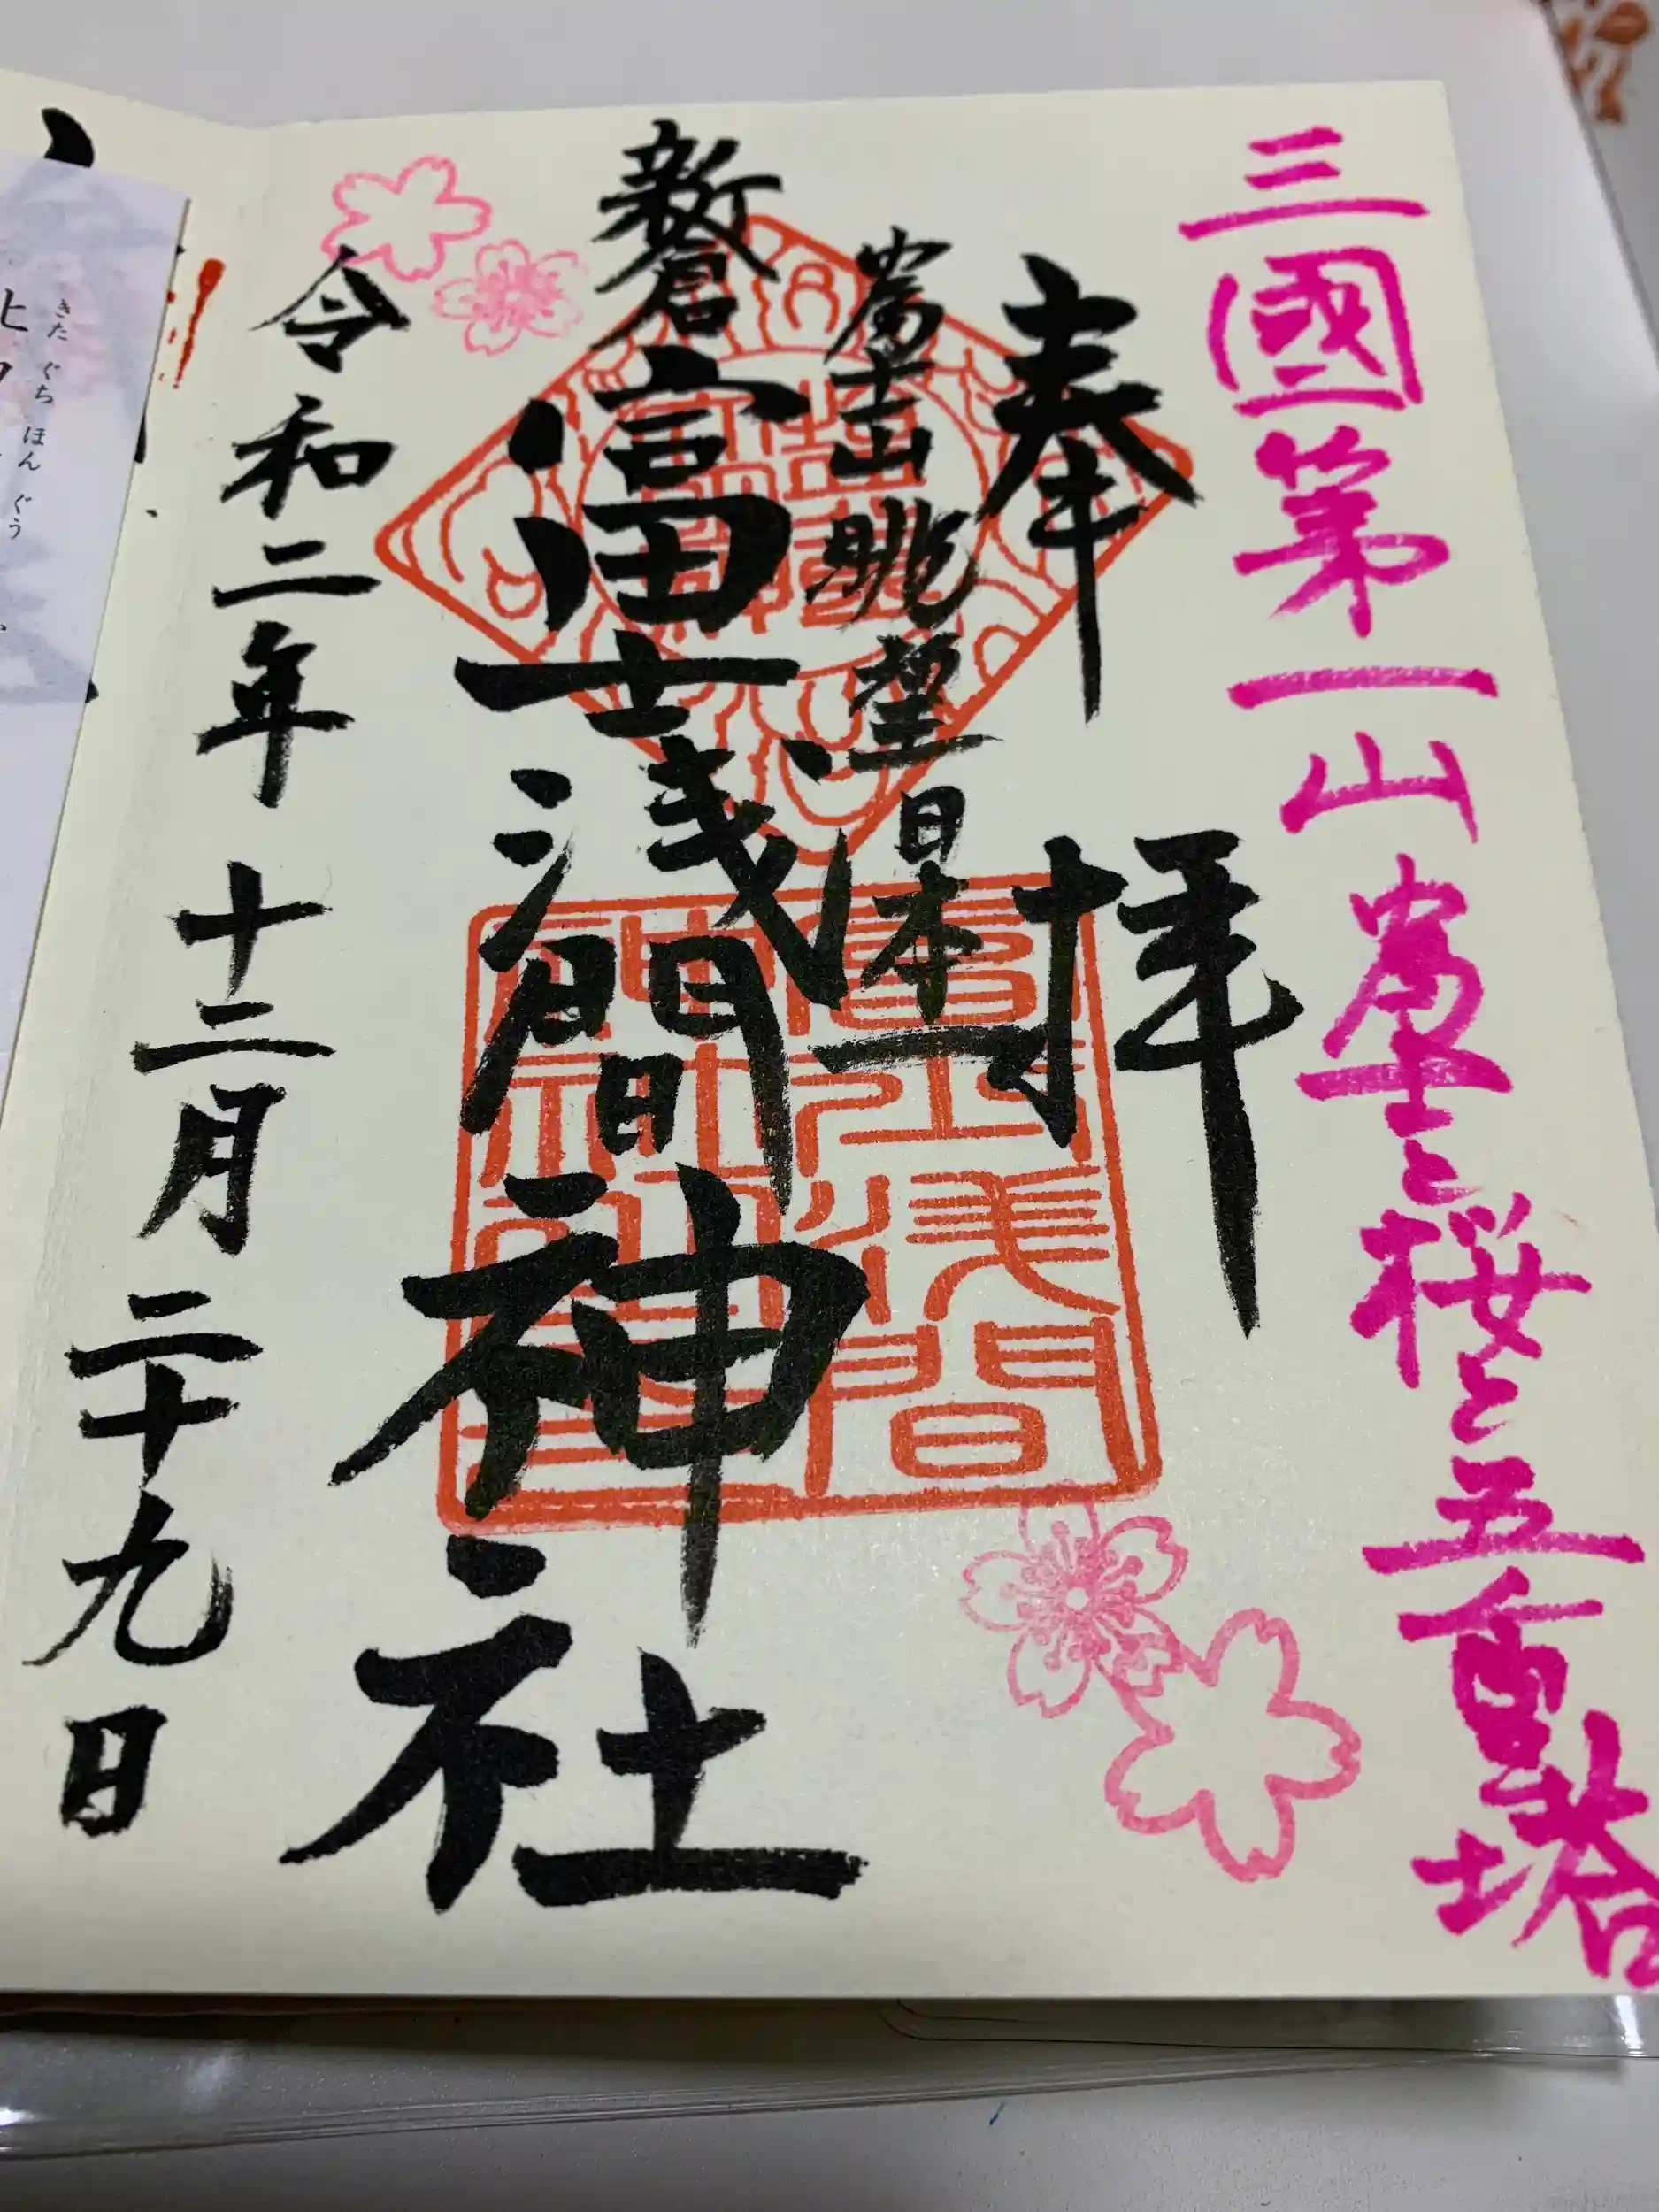 三國第一山富士と桜と五重塔
奉拝
富士山眺望日本一
新倉富士浅間神社
令和二年十二月二十九日
きたぐちほんぐう